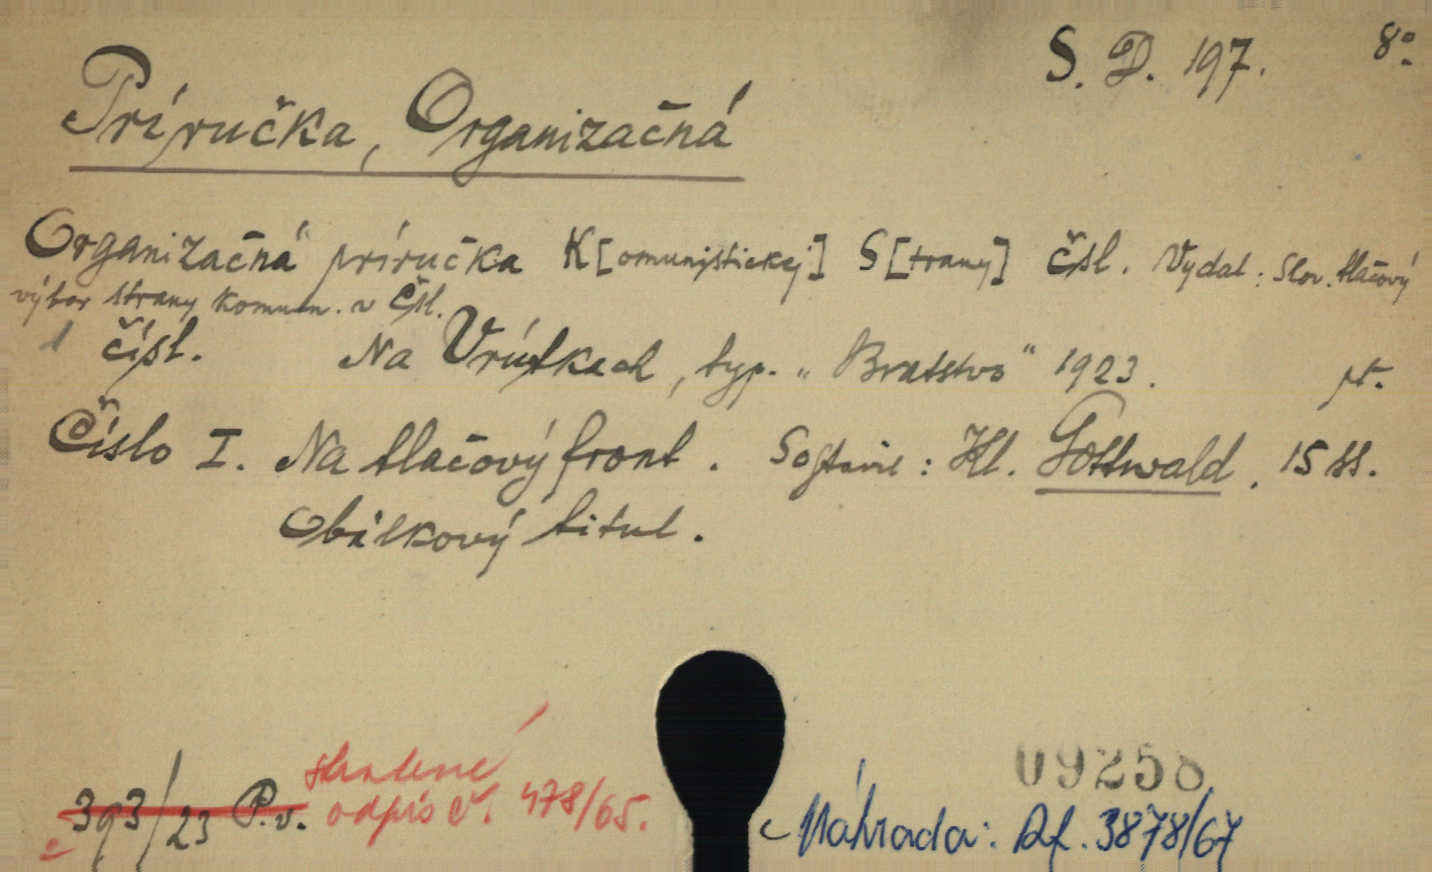 S. D. 197. 8°
Príručka, Organizačná
Organizačná príručka K[omunistickej] S[trany] Čsl. Vydal: Slov. tlačový
výbor strany komun. v Čsl.
1 čísl. Na Vrútkach, typ. „Bratstvo" 1923. pt.
Číslo I. Na tlačový front. Sostavil: Kl. Gottwald. 15 ss.
Obálkový titul.
stratené
393/23 P.v. odpis č. 478/65.
09258
Náhrada: Df. 3878/67